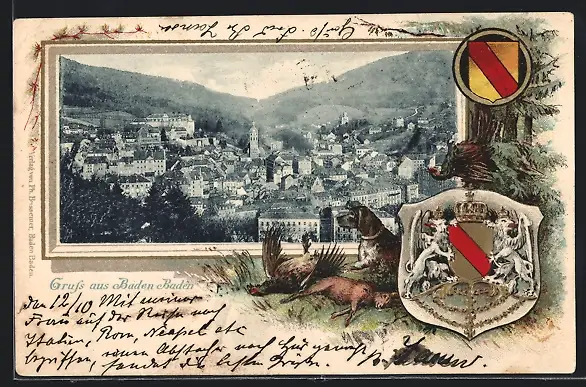 Gruß aus Baden Baden
Verlag von Ph. Bussemer, Baden Baden.
den 12/10 Mit meiner
Frau auf der Reise nach
Italien, Rom, Neapel etc
begriffen, einen Abstecher nach hier gemacht
sendet die besten Grüße.